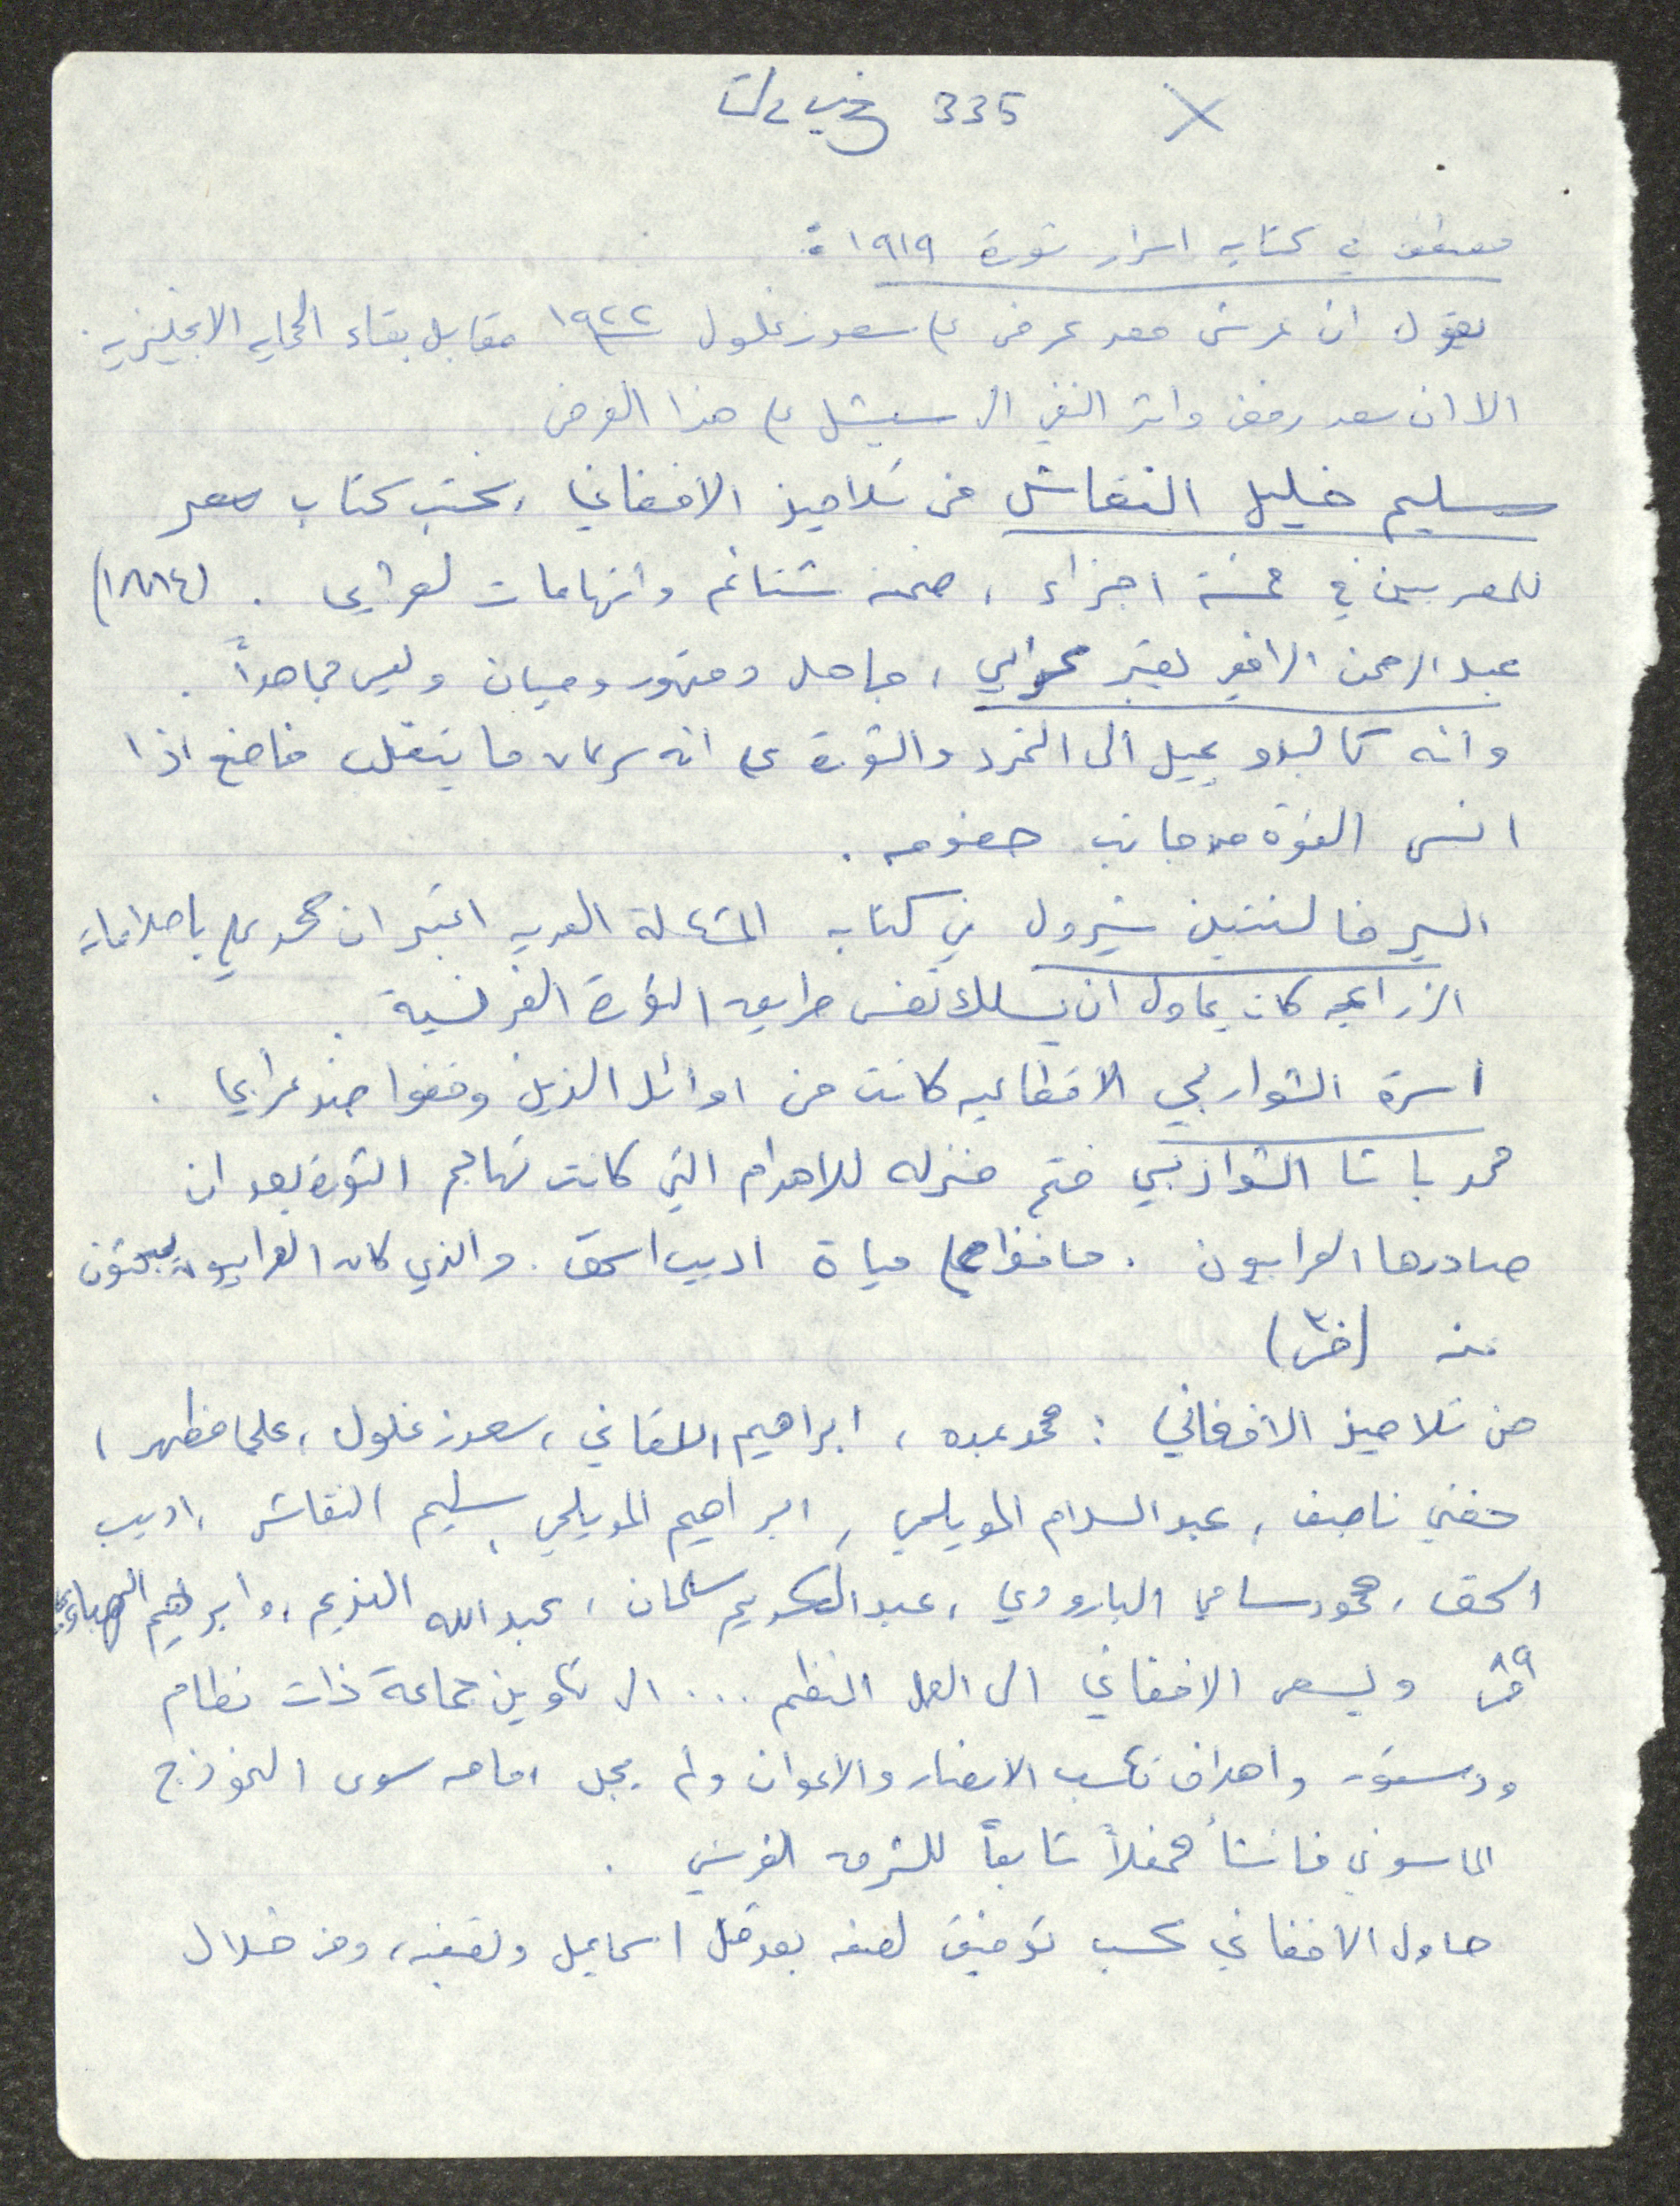 335 X
مصطفى في كتابه اسرار ثورة ١٩١٩ :
يقول ان عرش مصر عرض على سعد زغلول ١٩٢٢ مقابل بقاء الحماية الانجليزية .
الا ان سعد رفض واثر النفي الى سيشل على هذا العرض
سليم خليل النقاش من تلاميذ الافغاني ، كتب كتاب مصر
للمصريين في خمسة اجزاء ، ضمنه شتائم واتهامات لعرابي . (١٨٨٤)
عبد الرحمن الرافعي يعتبر عرابي ، جاهل ومتهور وجبان وليس مجاهداً .
وانه كالبدو يميل الى التمرد والثورة على انه سرعان ما ينقلب خاضع اذا
انس القوة من جانب خصومه .
السير فالنتين شيرول في كتابه المسألة المصرية اعتبر ان محمد علي باصلاحاته
الزراعية كان يحاول ان يسلك نفس طريق الثورة الفرنسية .
اسرة الشواربي الاقطاعيه كانت من اوائل الذين وقفوا ضد عرابي .
محمد باشا الشواربي فتح منزله للاهرام التي كانت تهاجم الثورة بعد ان
صادرها العرابيون . حافظوا على حياة اديب اسحق . والذي كان العرابيون يبحثون
عنه
من تلاميذ الافغاني : محمد عبده ، ابراهيم اللقاني ، سعد زغلول ، علي مظهر ،
حفني ناصف ، عبد السلام المويلحي ، ابراهيم المويلحي ، سليم النقاش ، اديب
اسحق ، محمود سامي البارودي ، عبد الكريم سلمان ، عبد الله النديم ، وابراهيم الهلباوي
ويسعى الافغاني الى العمل المنظم ... الى تكوين جماعة ذات نظام
ودستور واهداف تكسب الانصار والاعوان ولم يجد امامه سوى النموذج
الماسوني فانشأ محفلاً تابعاً للشرق الفرنسي .
حاول الافغاني كسب توفيق لصفه بعد اسماعيل ، ومن خلال